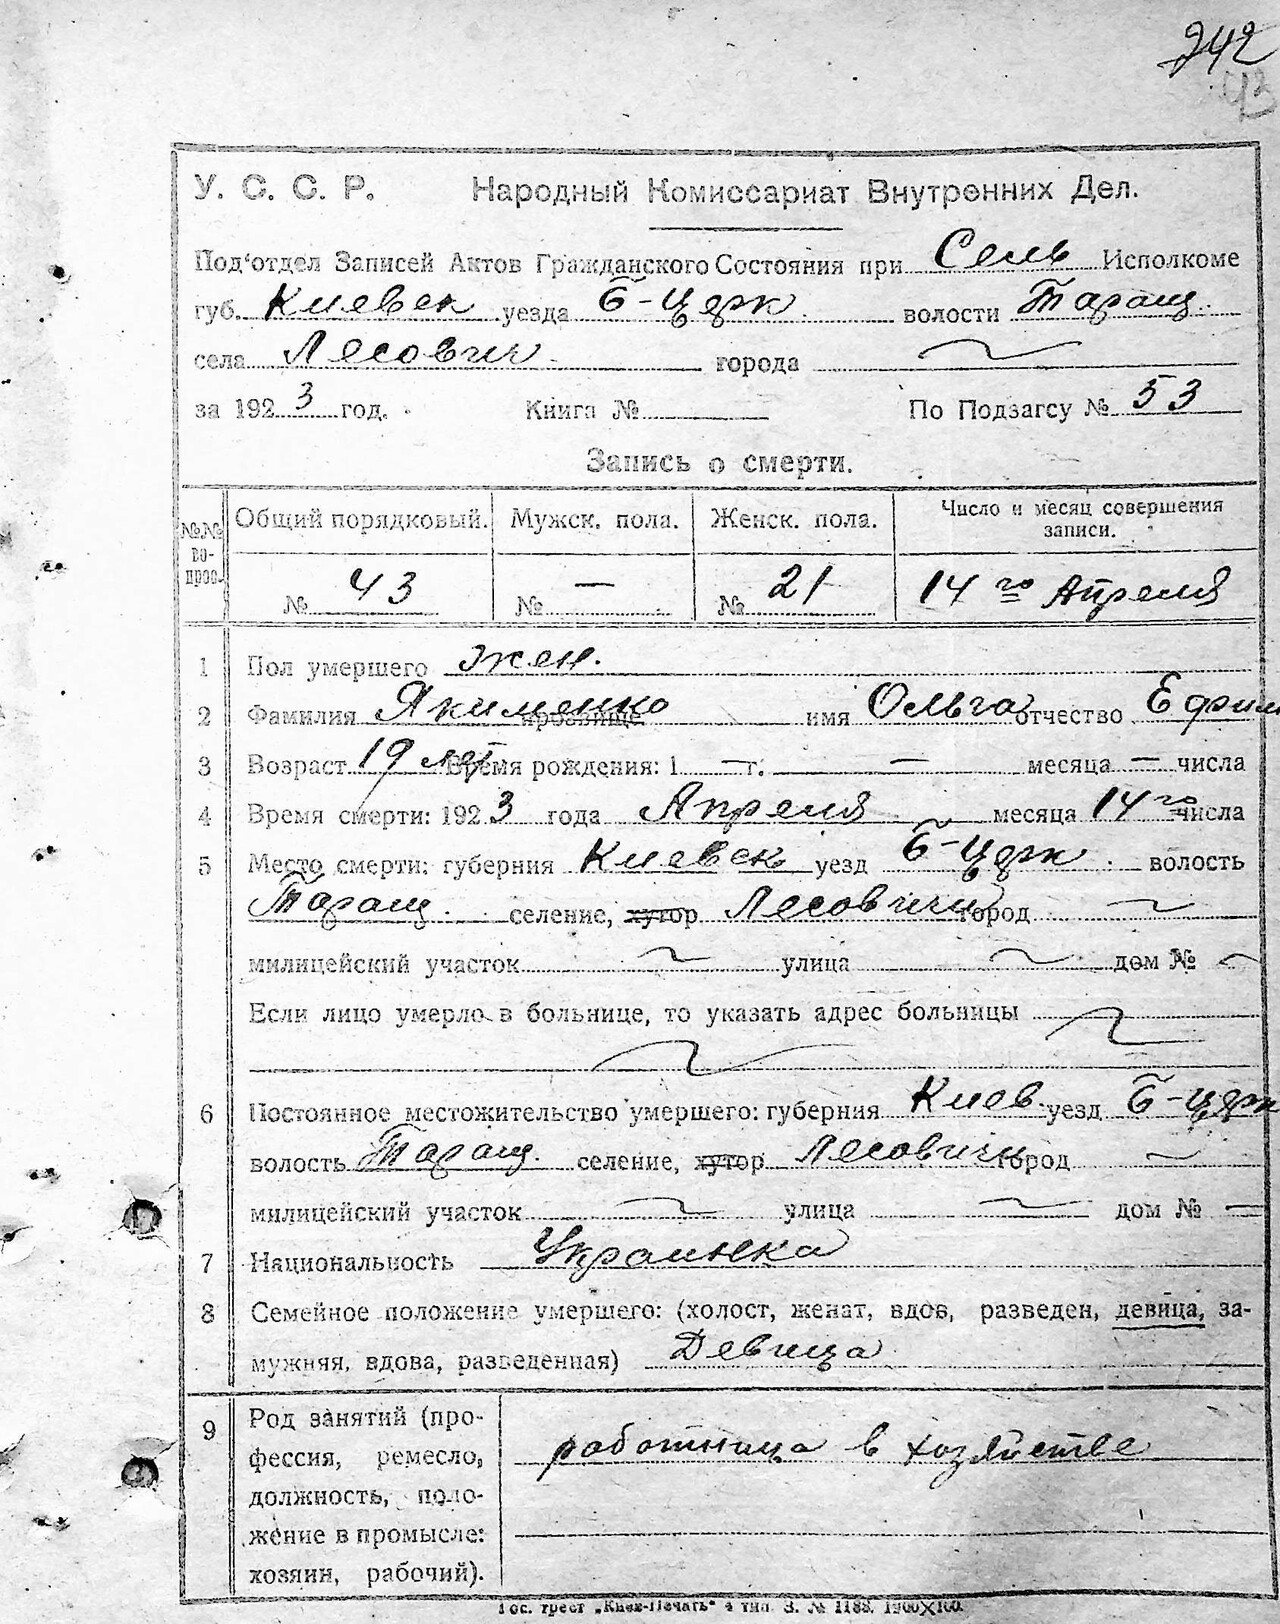 242
У. С. С. Р. Народный Комиссариат Внутренних Дел.
Под'отдел Записей Актов Гражданского Состояния при Сель Исполкоме
губ. Киевск уезда Б-Церк. волости Таращ.
села Лесович. города
за 1923 год. Книга № По Подзагсу № 53
Запись о смерти.
№№ вопрос. Общий порядковый. Мужск. пола. Женск. пола. Число и месяц совершения записи.
№ 43 № — № 21 14го Апреля
1 Пол умершего жен.
2 Фамилия Якименко прозвище имя Ольга отчество Ефим
3 Возраст 19 лет Время рождения: 1 — г. — месяца — числа
4 Время смерти: 1923 года Апреля месяца 14го числа
5 Место смерти: губерния Киевск уезд Б-Церк. волость
Таращ. селение, хутор Лесовичи город
милицейский участок улица дом №
Если лицо умерло в больнице, то указать адрес больницы
6 Постоянное местожительство умершего: губерния Киев. уезд Б-Церк
волость Таращ. селение, хутор Лесовичи город
милицейский участок улица дом № —
7 Национальность Украинка
8 Семейное положение умершего: (холост, женат, вдов, разведен, девица, за-
мужняя, вдова, разведенная) Девица
9 Род занятий (про-
фессия, ремесло, работница в хозяйстве
должность, поло-
жение в промысле:
хозяин, рабочий).
Гос. трест „Киев-Печать" 4 тип. З. № 1188. 1900X100.